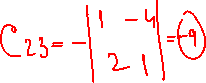 C23 = - | 1 -4 |
| 2 1 | = -9